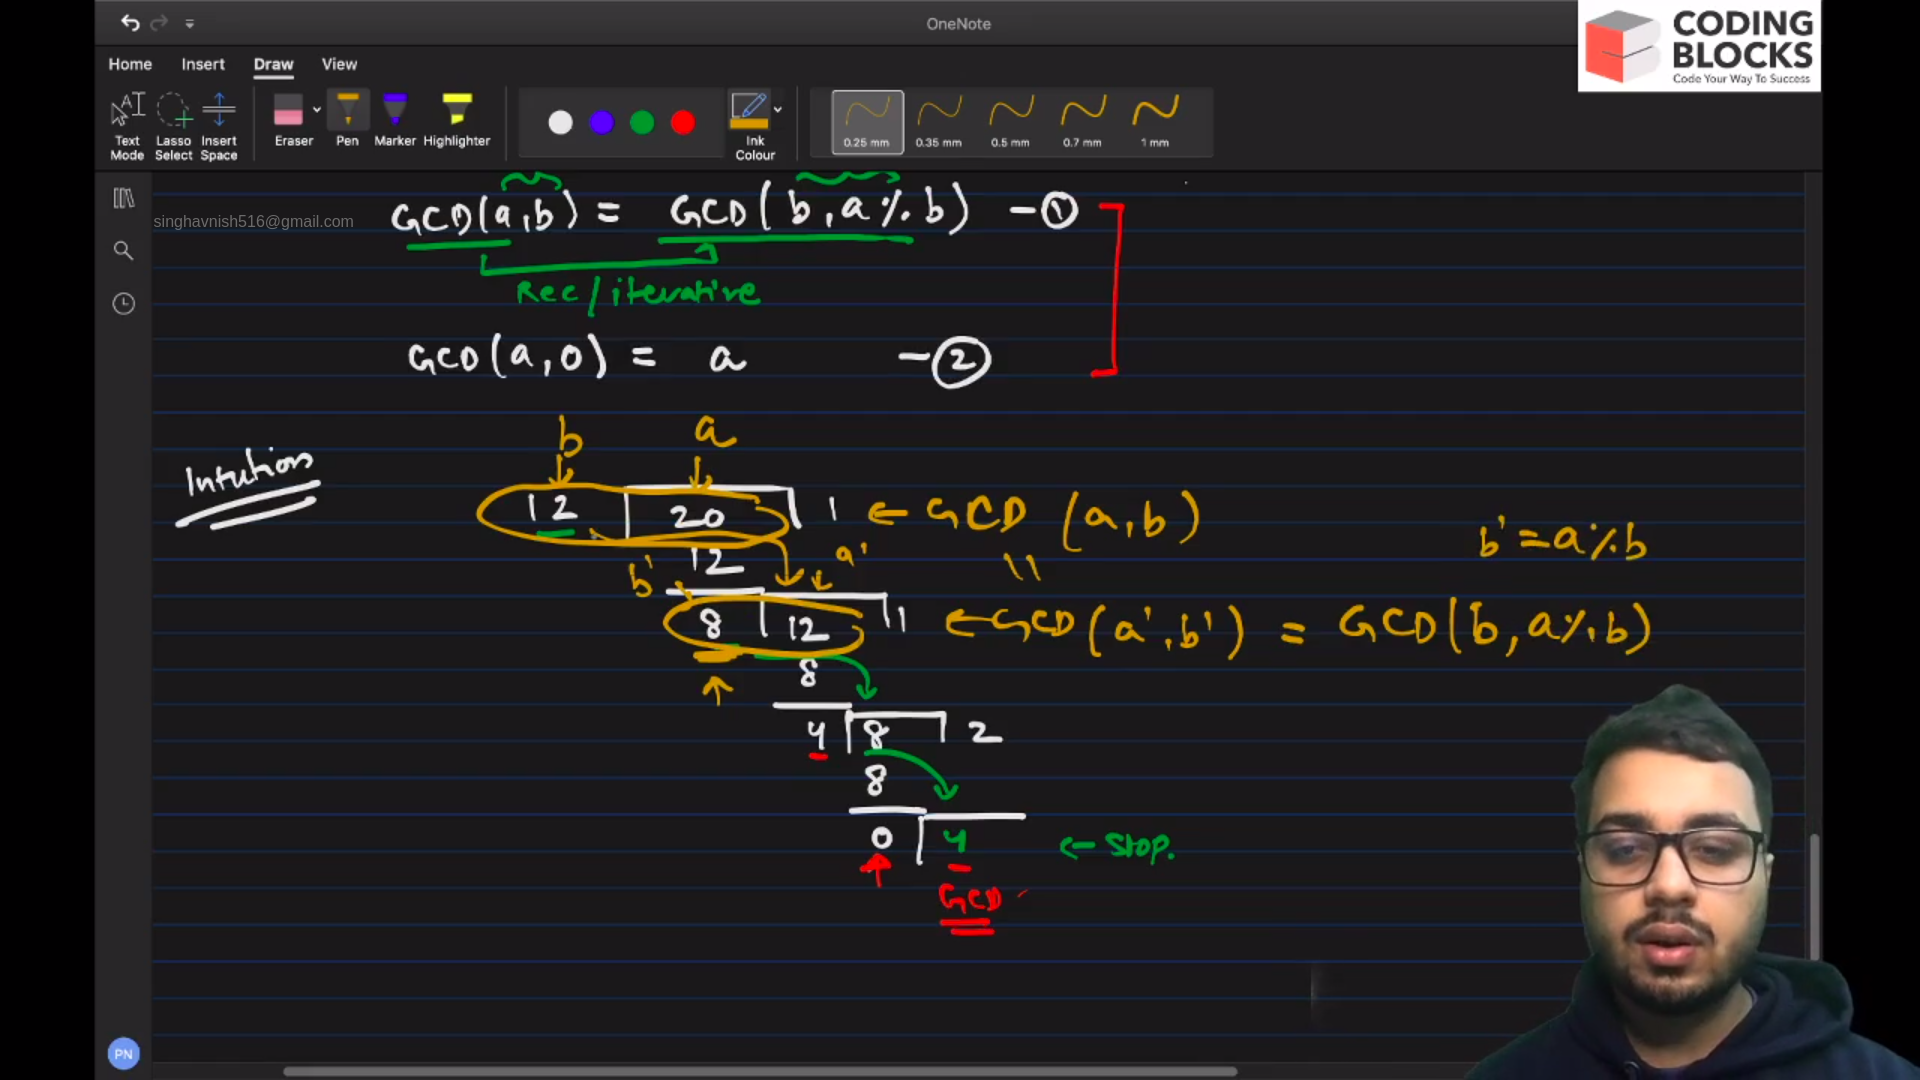 OneNote
CODING
BLOCKS
Code Your Way To Success
Home Insert Draw View
Text Mode Lasso Select Insert Space Eraser Pen Marker Highlighter Ink Colour 0.25 mm 0.35 mm 0.5 mm 0.7 mm 1 mm
singhavnish516@gmail.com
GCD(a,b) = GCD(b, a % b) - ①
Rec/iterative
GCD(a,0) = a - ②
Intution
b a
12 20 1 ← GCD (a,b)
b' = a % b
12 a'
b'
8 12 1 ← GCD(a',b') = GCD(b, a % b)
8
4 8 2
8
0 4 ← Stop.
GCD
PN